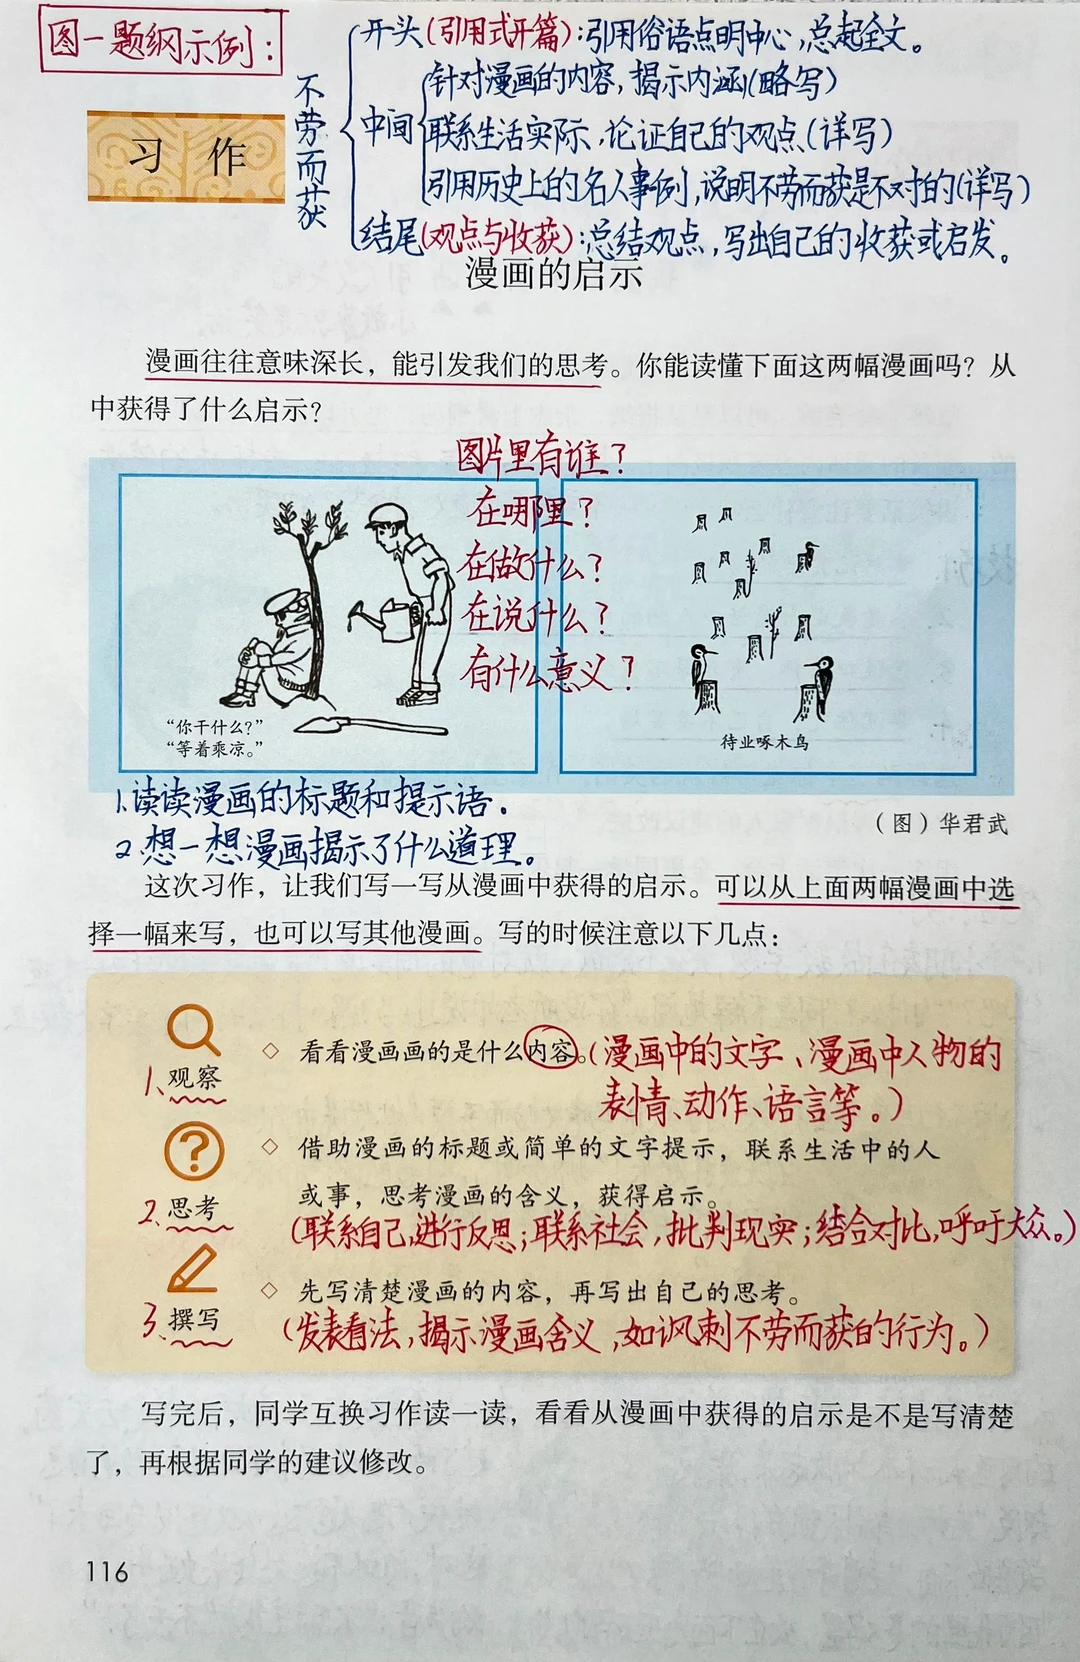 图一题纲示例：
不劳而获
开头(引用式开篇)：引用俗语点明中心，总起全文。
中间
针对漫画的内容，揭示内涵(略写)
联系生活实际，论证自己的观点(详写)
引用历史上的名人事例，说明不劳而获是不对的(详写)
结尾(观点与收获)：总结观点，写出自己的收获或启发。
习 作
漫画的启示
漫画往往意味深长，能引发我们的思考。你能读懂下面这两幅漫画吗？从
中获得了什么启示？
图片里有谁？
在哪里？
在做什么？
在说什么？
有什么意义？
“你干什么？”
“等着乘凉。”
待业啄木鸟
1.读读漫画的标题和提示语.
2.想一想漫画揭示了什么道理。
（图）华君武
这次习作，让我们写一写从漫画中获得的启示。可以从上面两幅漫画中选
择一幅来写，也可以写其他漫画。写的时候注意以下几点：
1、观察
◇ 看看漫画画的是什么内容。(漫画中的文字、漫画中人物的
表情、动作、语言等。)
2、思考
◇ 借助漫画的标题或简单的文字提示，联系生活中的人
或事，思考漫画的含义，获得启示。
(联系自己,进行反思；联系社会，批判现实；结合对比,呼吁大众。)
3、撰写
◇ 先写清楚漫画的内容，再写出自己的思考。
(发表看法，揭示漫画含义，如讽刺不劳而获的行为。)
写完后，同学互换习作读一读，看看从漫画中获得的启示是不是写清楚
了，再根据同学的建议修改。
116